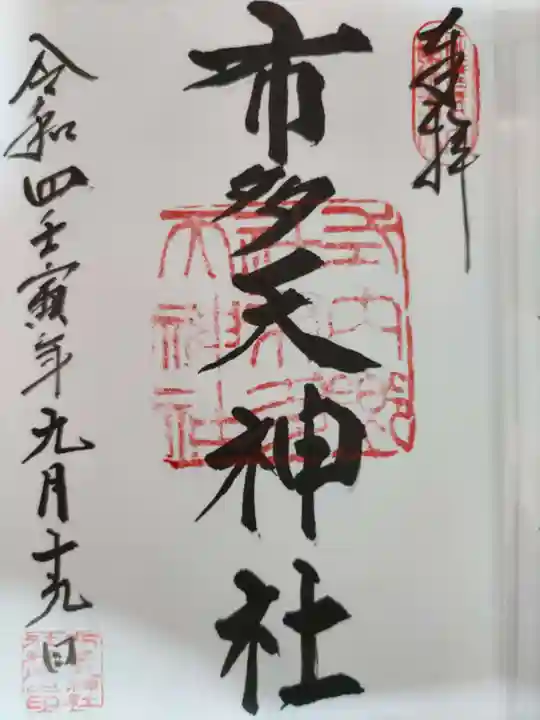 奉拝
市多天神社
令和四壬寅年九月十九日